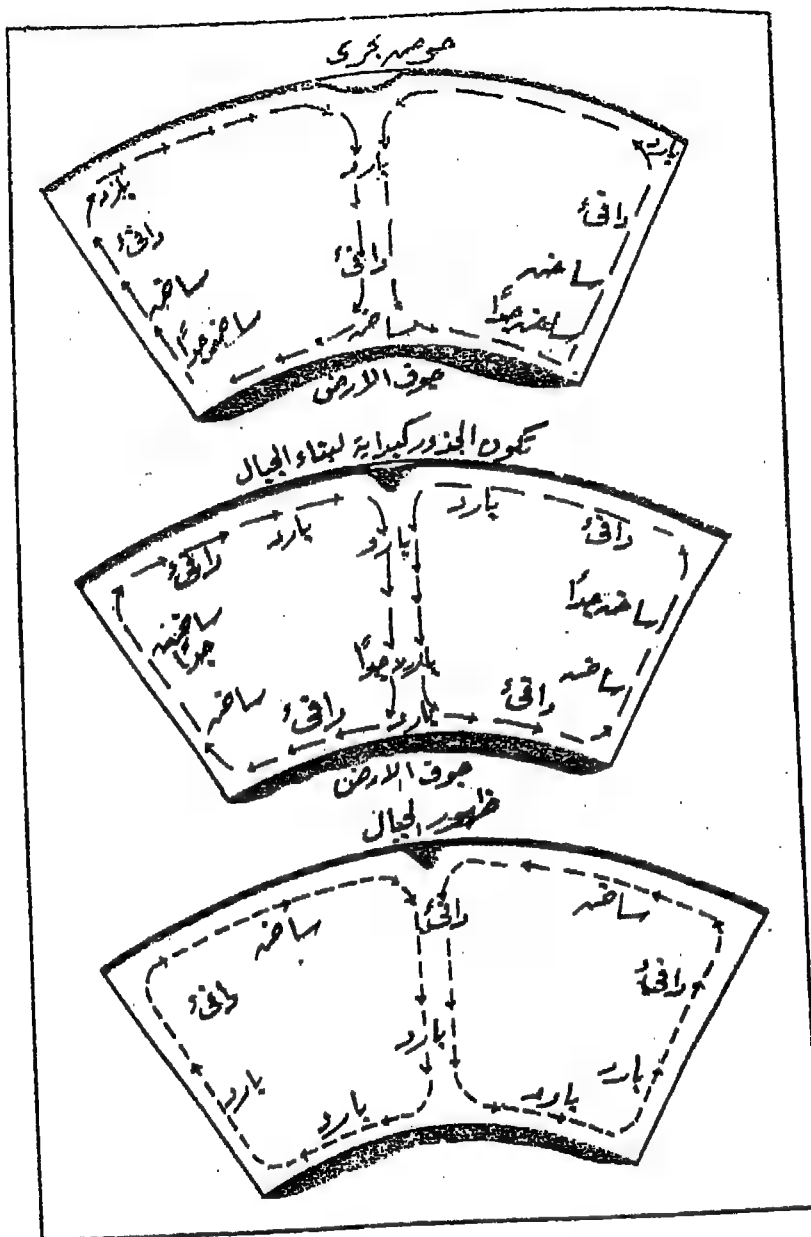 حوض بحرى
بارد
بارد
بارد
دافئ
دافئ
دافئ
ساخن
ساخن
ساخن جداً
ساخن جداً
ساخن
جوف الارض
تكون الجذور كبداية لبناء الجبال
بارد
بارد
دافئ
بارد
دافئ
ساخن
جداً
ساخن جداً
بارد جداً
ساخن
ساخن
دافئ
دافئ
بارد
جوف الارض
ظهور الجبال
ساخن
دافئ
ساخن
دافئ
دافئ
بارد
بارد
بارد
بارد
بارد